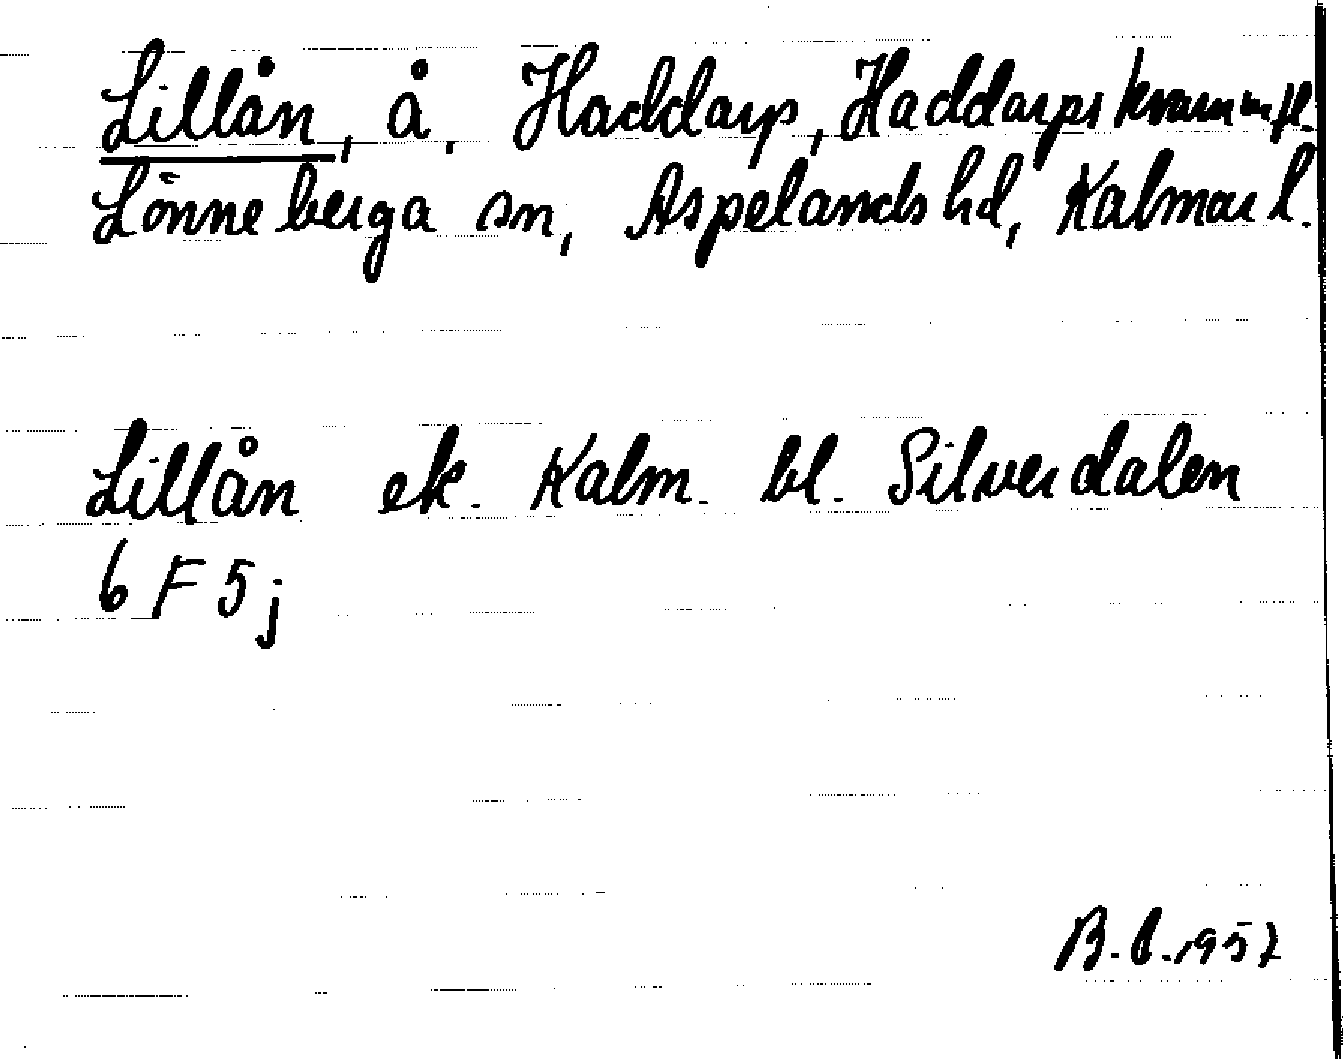 Lillån, å. Haddarp, Haddarps kvarn m.fl.
Lönneberga sn, Aspelands hd, Kalmar l.
Lillån ek. Kalm. bl. Silverdalen
6 F 5 j
B.C. 1957